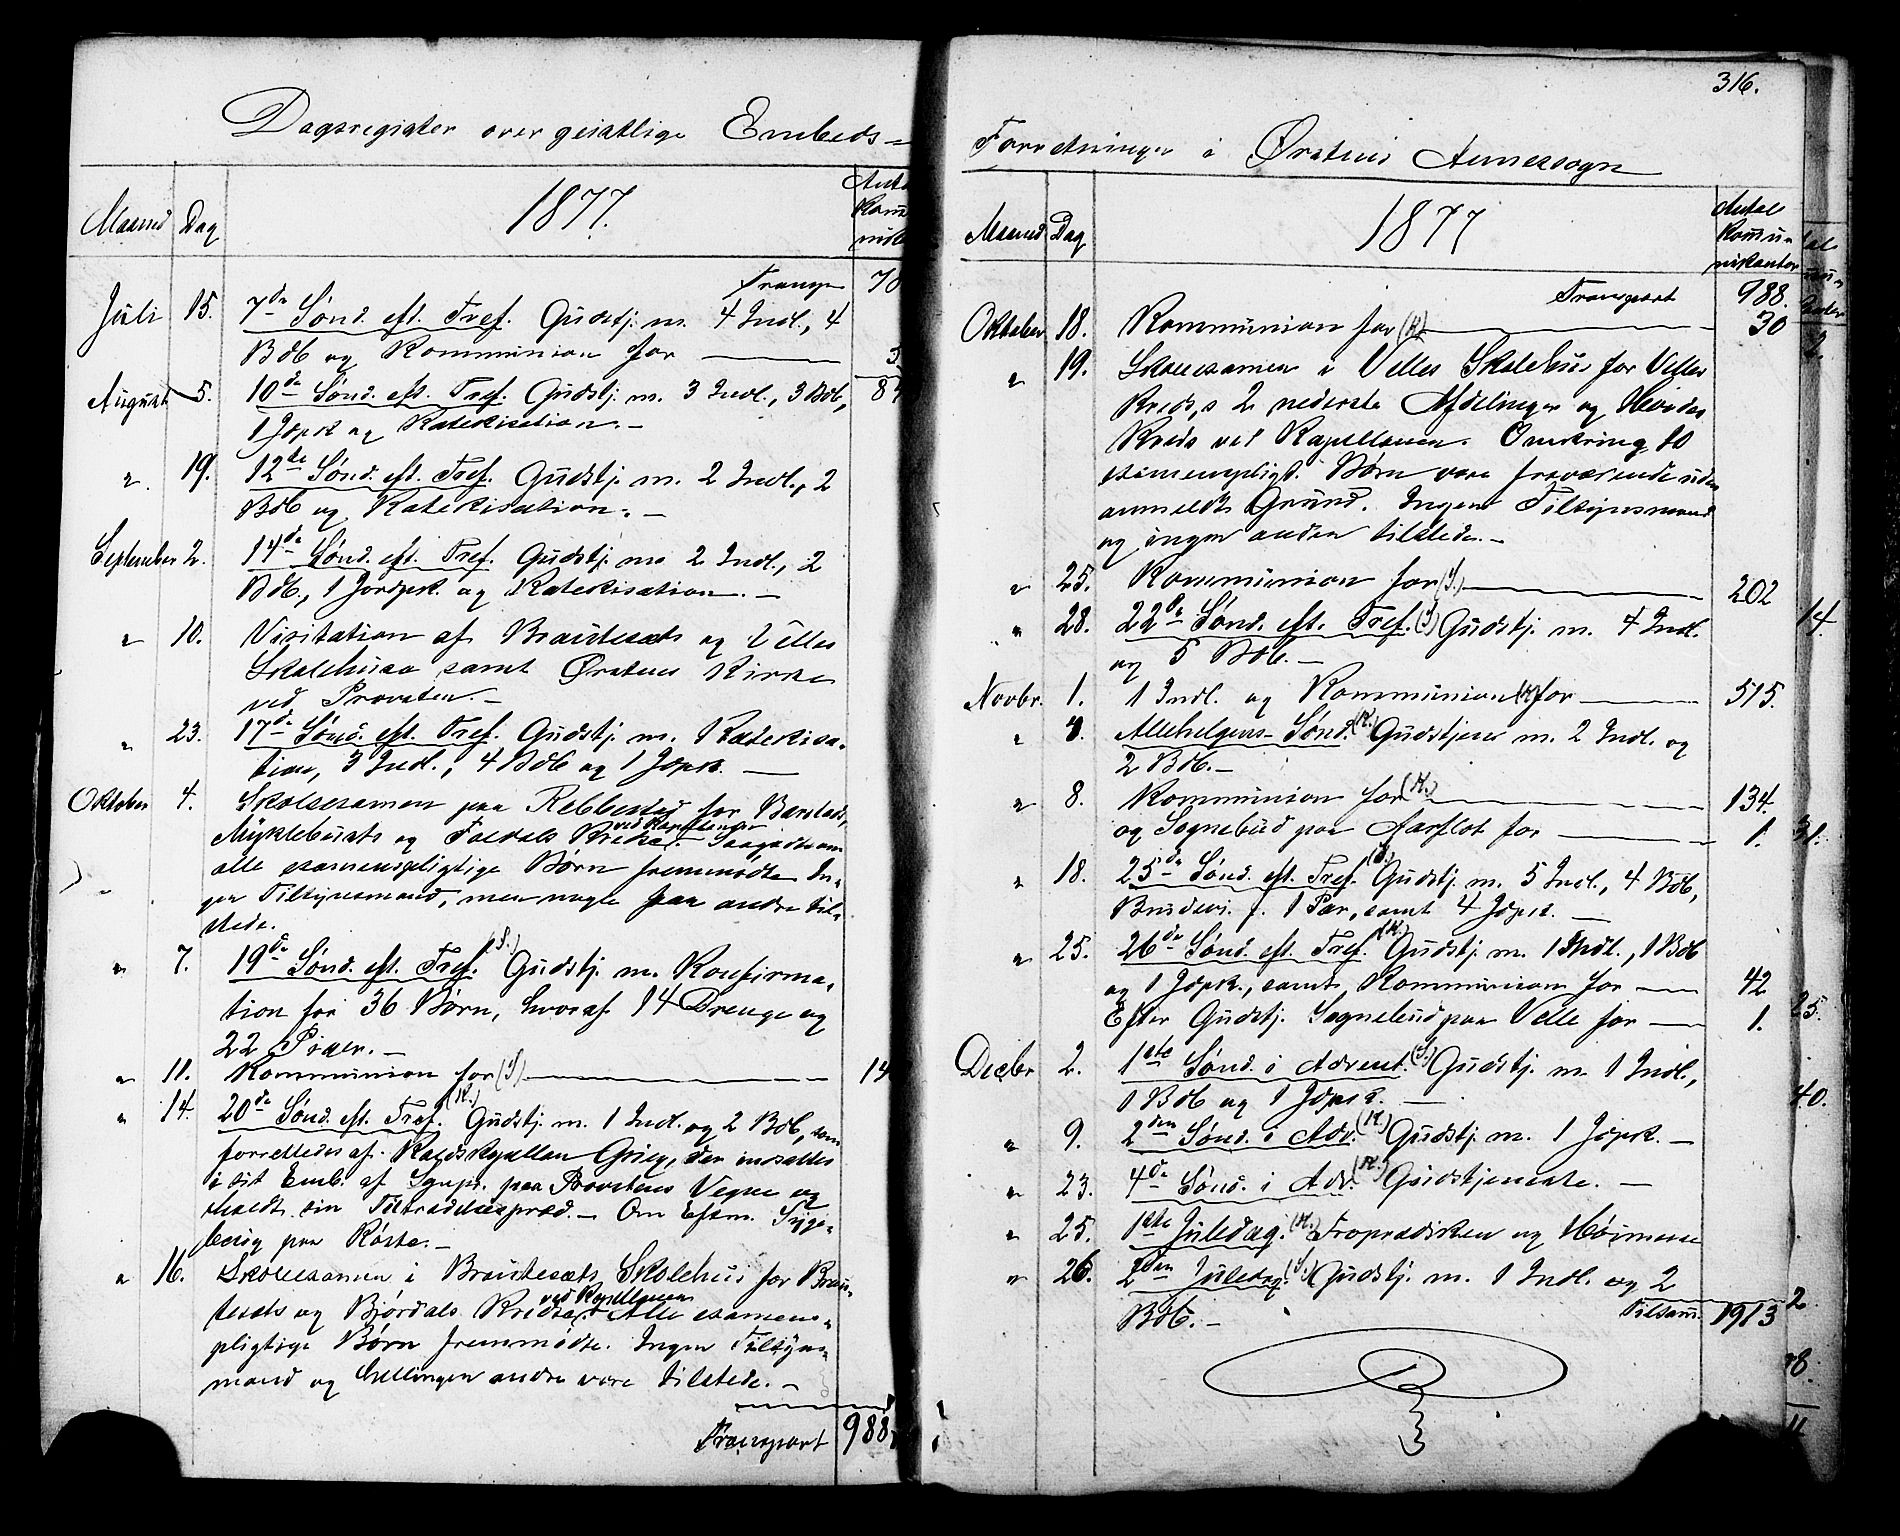 316.
Dagsregister over geistlige Embeds-
Maaned Dag 1877.
Transp
Juli 15. 7de Sønd. eft. Tref. Gudstj. m. 4 Indl., 4
Bdb og Kommunion for
August 5. 10de Sønd. eft. Tref. Gudstj. m. 3 Indl., 3 Bdb,
1 Jdpk og Katekisation. -
" 19. 12te Sønd. eft. Tref. Gudstj. m. 2 Indl., 2
Bdb og Katekisation. -
September 2. 14de Sønd. eft. Tref. Gudstj. m. 2 Indl., 2
Bdb., 1 Jordpk. og Katekisation. -
" 10. Visitation af Brautesæts og Velles
Skolehuse samt Ørstens Kirke
ved Provsten. -
" 23. 17de Sønd. eft. Tref. Gudstj. m. Katekisa-
tion, 3 Indl., 4 Bdb og 1 Jdpk. -
Oktober 4. Skoleexamen paa Rebbestad for Barstads,
Myklebusts og Foldals Kredse ved Kapellanen. Saagodtsom
alle examenspligtige Børn fremmødte. In-
gen Tilsynsmand, men nogle faa andre til-
stede.
" 7. 19de Sønd. eft. Tref. (S.) Gudstj. m. Konfirma-
tion for 36 Børn, hvoraf 14 Drenge og
22 Piger. -
" 11. Kommunion for (S)
" 14. 20de Sønd. eft. Tref. (K.) Gudstj. m. 1 Indl. og 2 Bdb, som
forrettedes af Kaldskapellan Grieg, der indsattes
i sit Emb. af Sgnpr. paa Provstens Vegne og
holdt sin Tiltrædelsespræd. - Om Efterm. Syge-
besøg paa Røste. -
" 16. Skoleexamen i Brautesæts Skolehus for Brau-
tesæts og Bjørdals Kredse ved Kapellanen. Alle examens-
pligtige Børn fremmødte. Ingen Tilsyns-
mand og hellingen andre vare tilstede. -
Transport 988
Forretninger i Ørstens Annexsogn
Maaned Dag 1877 Antal Kommu-
nikanter
Transport 988.
Oktober 18. Kommunion for (K) 30
" 19. Skoleexamen i Velles Skolehus for Velles
Kreds,s 2 nederste Afdelinger og Hovdes
Kreds ved Kapellanen. Omkring 10
examenspligt. Børn vare fraværende uden
anmeldt Grund. Ingen Tilsynsmand
og ingen anden tilstede. -
" 25. Kommunion for (S.) 202
" 28. 22de Sønd. eft. Tref. (S) Gudstj. m. 4 Indl.
og 5 Bdb. -
Novbr. 1. 1 Indl. og Kommunion (K) for 515.
" 4. Allehelgens Sønd. (K.) Gudstjeneste m. 2 Indl. og
2 Bdb. -
" 8. Kommunion for (K.) 134.
og Sognebud paa Aarflot for 1.
" 18. 25de Sønd. eft. Tref. (S.) Gudstj. m. 5 Indl., 4 Bdb,
Brudevi. f. 1 Par, samt 4 Jdpk. -
" 25. 26de Sønd. eft. Tref. (K.) Gudstj. m. 1 Indl., 1 Bdb
og 1 Jdpk., samt Kommunion for 42
Efter Gudstj. Sognebud paa Velle for 1.
Decbr 2. 1ste Sønd. i Advent. (S.) Gudstj. m. 1 Indl.,
1 Bdb og 1 Jdpk. -
" 9. 2den Sønd. i Adv. (K) Gudstj. m. 1 Jdpk. -
" 23. 4de Sønd. i Adv. (K.) Gudstjeneste. -
" 25. 1ste Juledag. (K.) Froprædiken og Høimesse
" 26. 2den Juledag. (S.) Gudstj. m. 1 Indl. og 2
Bdb. - Tilsam. 1913